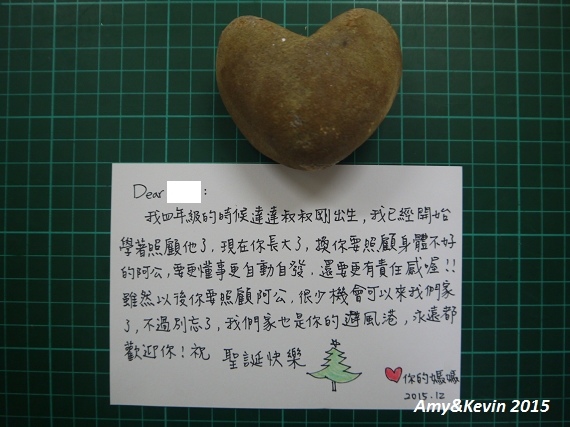 Dear :
我四年級的時候達達叔叔剛出生，我已經開始
學著照顧他了，現在你長大了，換你要照顧身體不好
的阿公，要更懂事更自動自發，還要更有責任感喔!!
雖然以後你要照顧阿公，很少機會可以來我們家
了，不過別忘了，我們家也是你的避風港，永遠都
歡迎你！祝 聖誕快樂
你的媽媽
2015.12
Amy&Kevin 2015